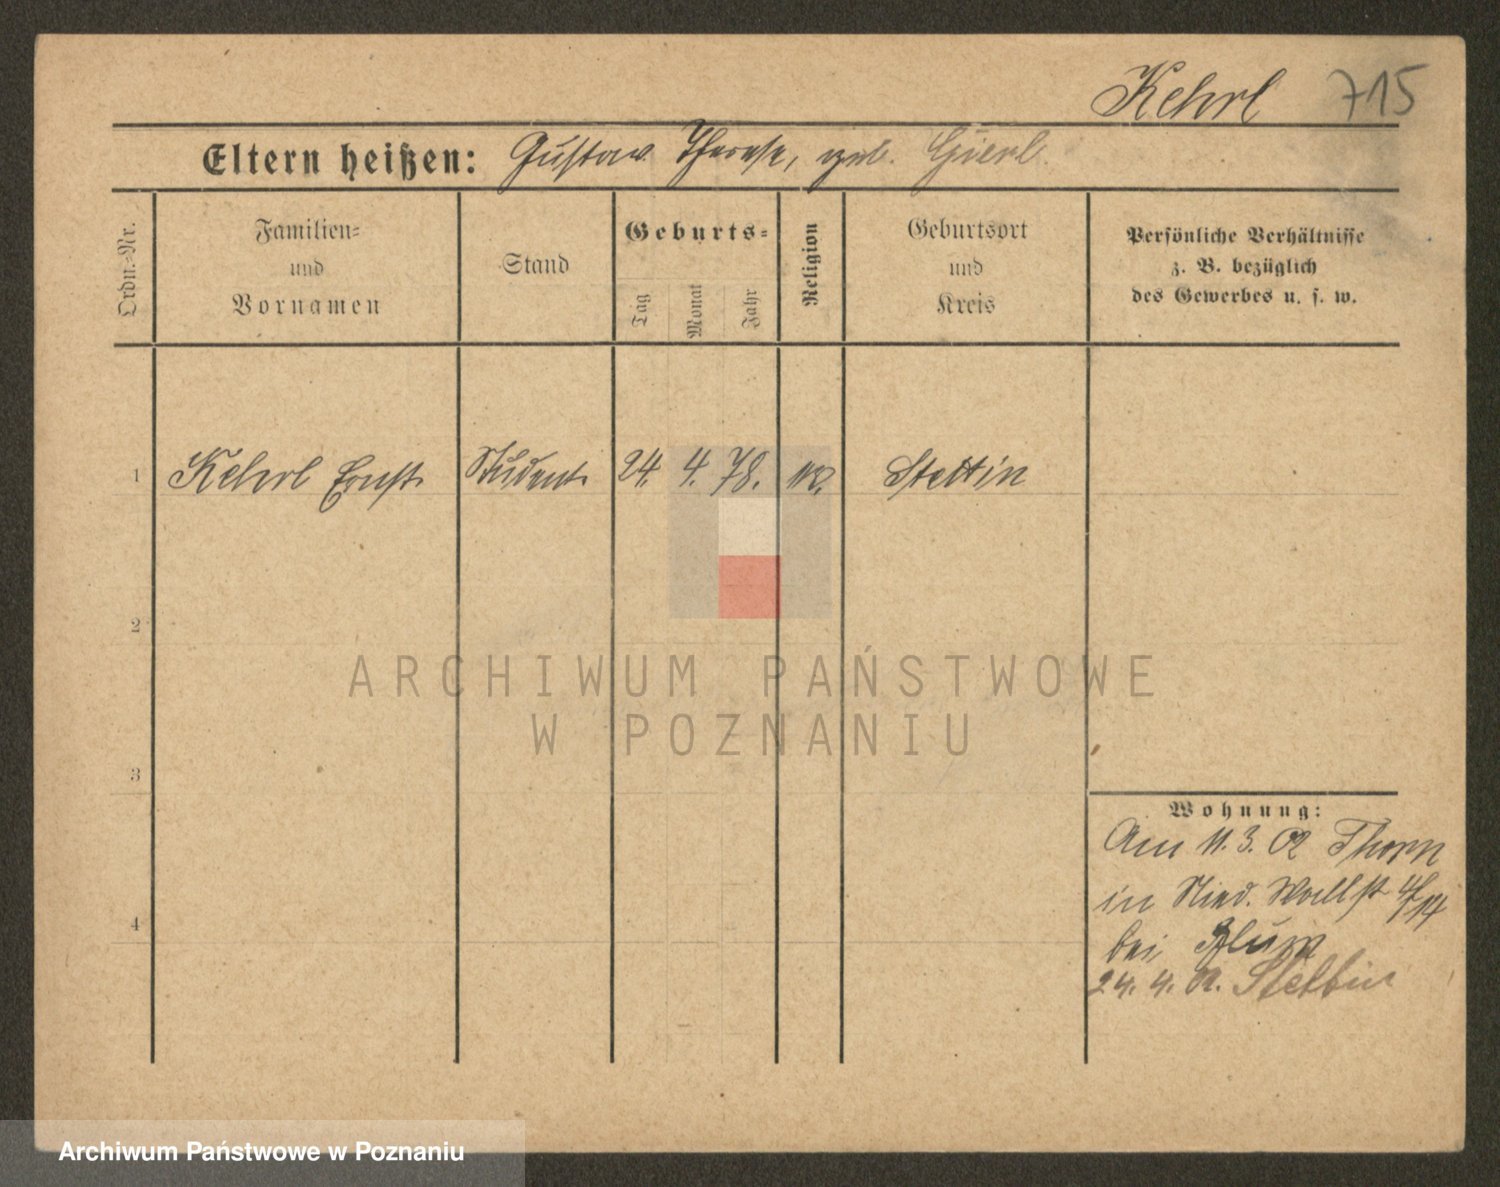 Kehrl 715
Eltern heißen: Gustav Therese, geb. Gierl.
Ordn.-Nr.
Familien-
und
Vornamen
Stand
Geburts-
Tag
Monat
Jahr
Religion
Geburtsort
und
Kreis
Persönliche Verhältnisse
z. B. bezüglich
des Gewerbes u. s. w.
1 Kehrl Ernst Student 24. 4. 78. Stettin
2
3
4
Wohnung:
Am 11. 3. 02 Thorn
in Nied. Wallst 4/14
bei
24. 4. 02. Stettin
ARCHIWUM PAŃSTWOWE
W POZNANIU
Archiwum Państwowe w Poznaniu